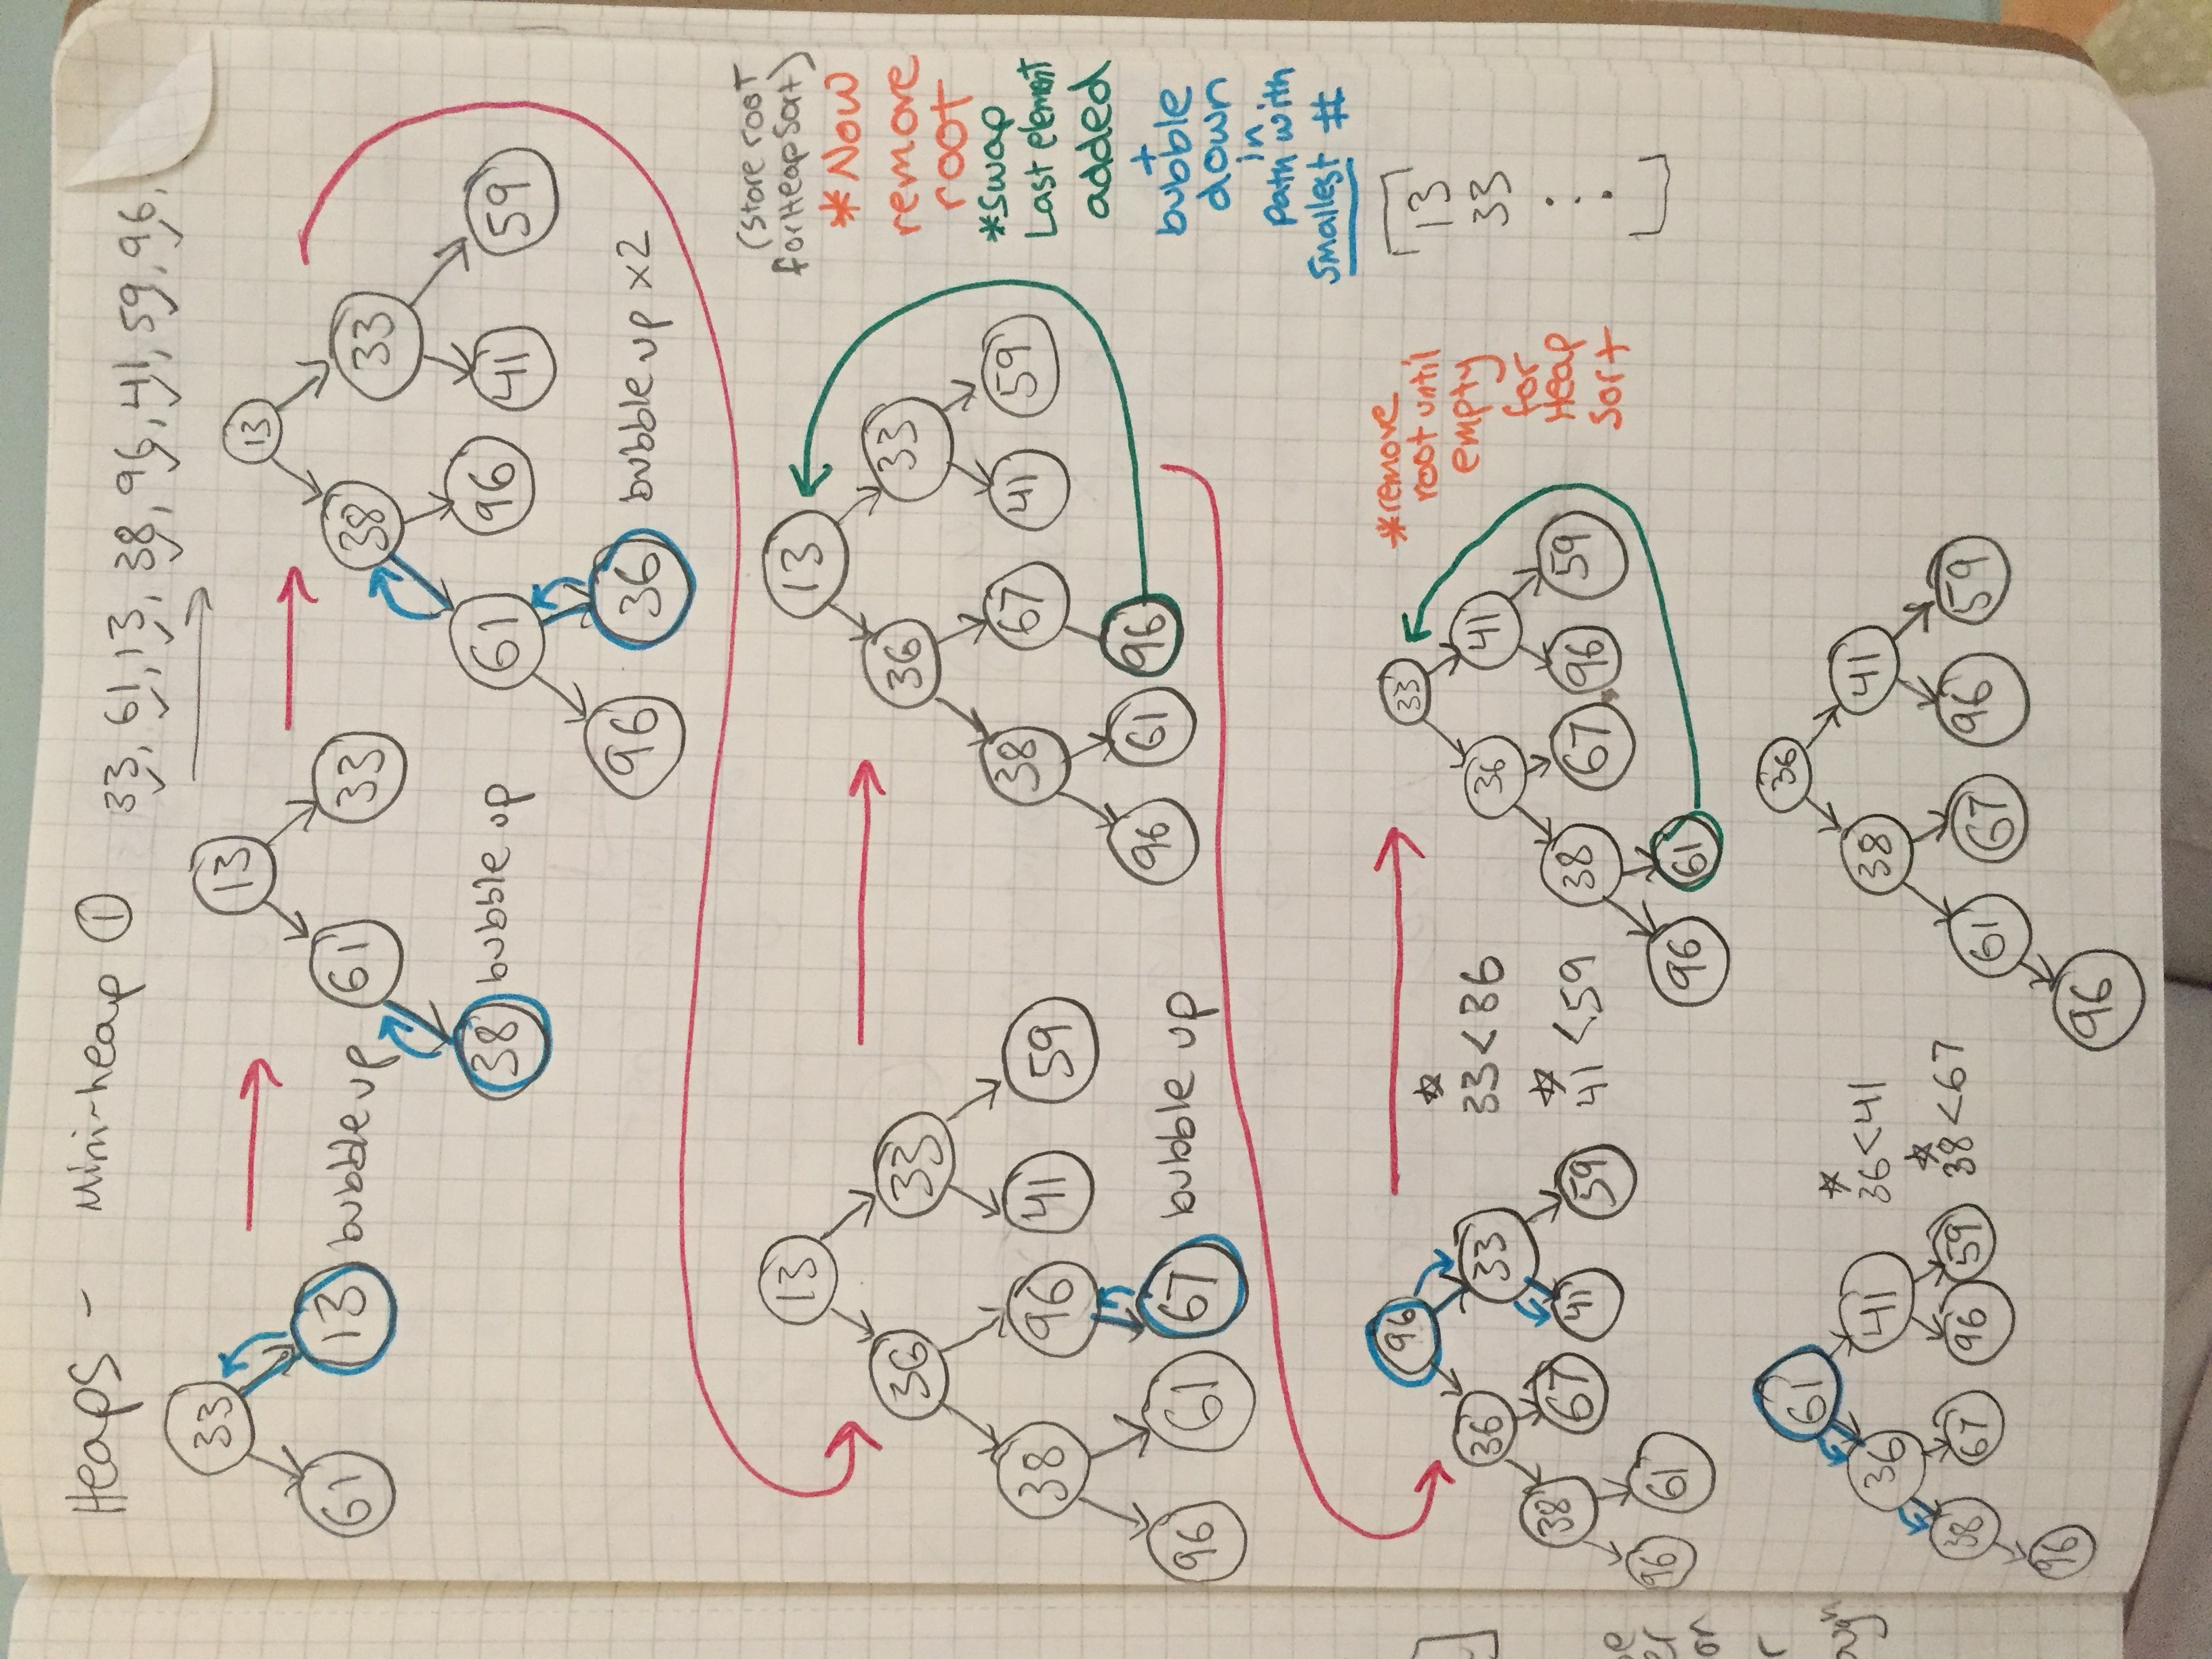 Heaps - Mini-heap ①
33, 61, 13, 38, 96, 41, 59, 96,
33
61 13 bubble up
13
61 33
38 bubble up
13
38 33
61 96 41 59
96 36 bubble up x2
13
36 33
38 96 41 59
96 61 67 bubble up
13
36 33
38 67 41 59
96 61 96
(store root
for HeapSort)
*Now
remove
root
*swap
Last element
added
+
bubble
down
in
path with
smallest #
96
36 33
38 67 41 59
96 61
33<36
41<59
33
36 41
38 67 96 59
96 61
*remove
root until
empty
for
Heap
Sort
13
33
61
36 41
38 67 96 59
96
36<41
38<67
36
38 41
61 67 96 59
96